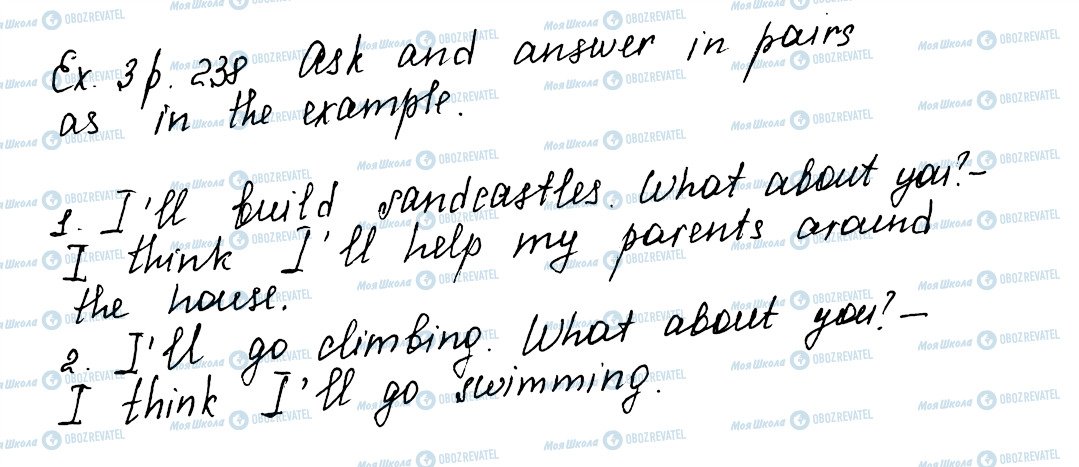 Ex. 3 p. 238 Ask and answer in pairs
as in the example.
1. I'll build sandcastles. What about you? –
I think I'll help my parents around
the house.
2. I'll go climbing. What about you? –
I think I'll go swimming.